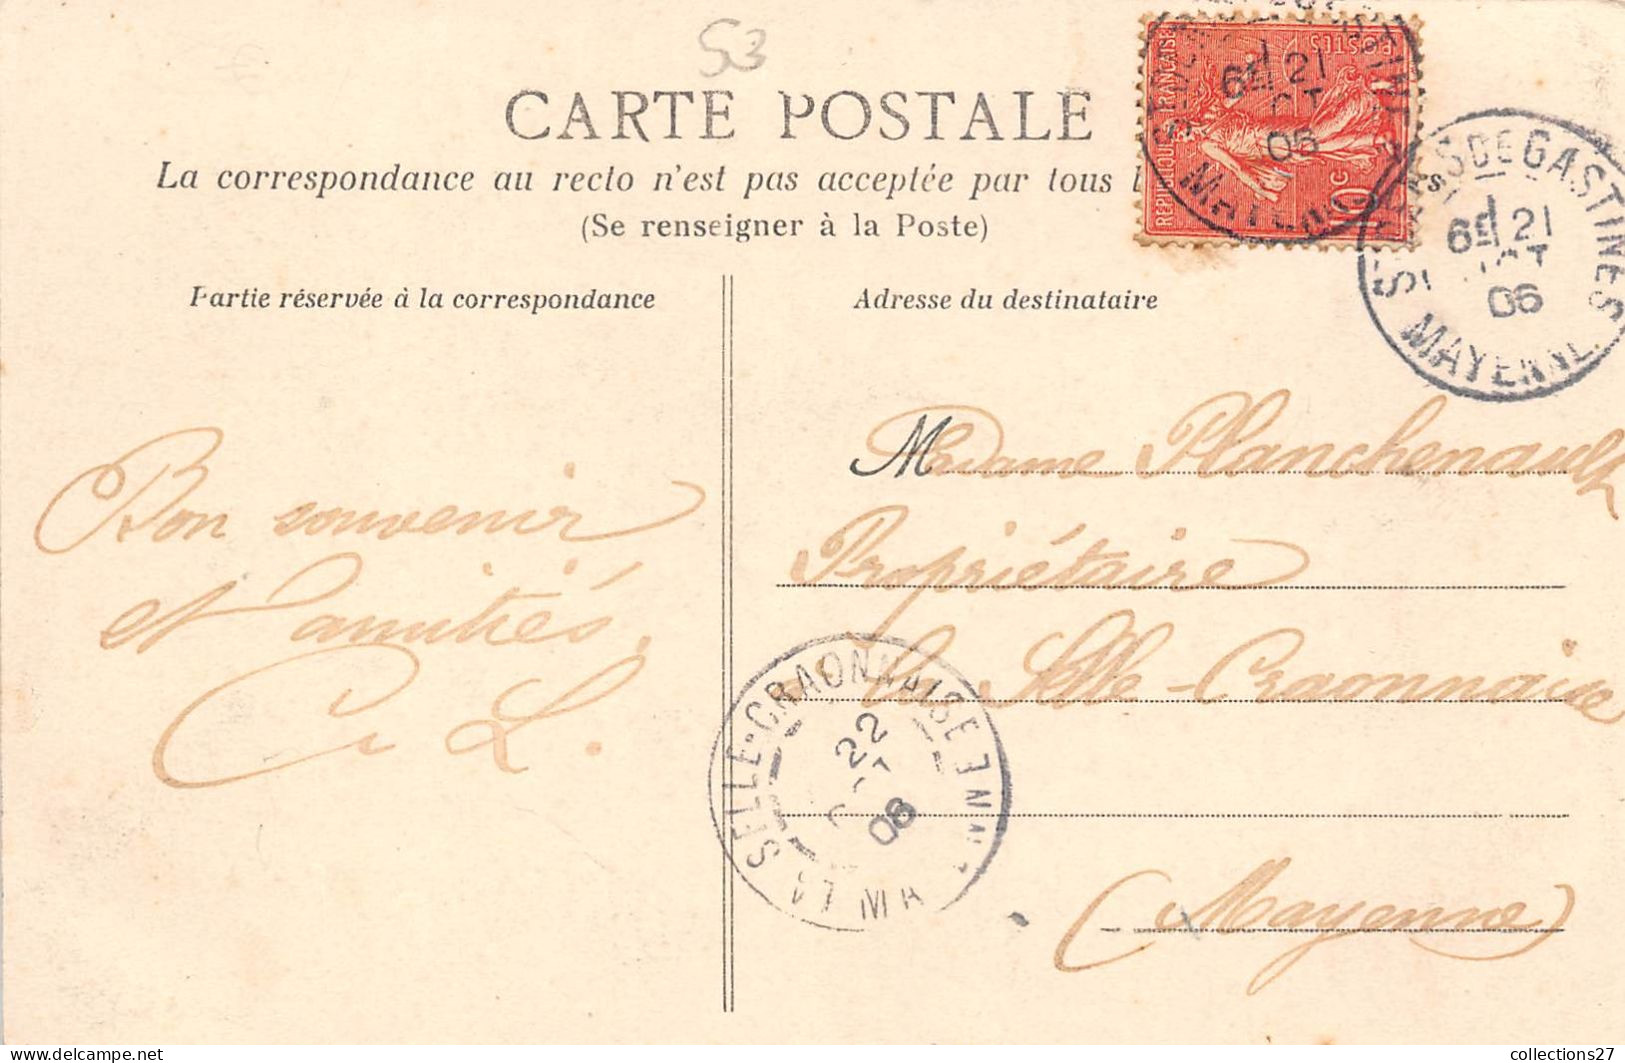 53
CARTE POSTALE
La correspondance au recto n'est pas acceptée par tous
(Se renseigner à la Poste)
Partie réservée à la correspondance
Adresse du destinataire
RÉPUBLIQUE FRANÇAISE
POSTES
10c
6E 21
OCT
06
MAYENNE
DE GASTINES
6E 21
OCT
06
MAYENNE
Bon souvenir
et amitiés.
C L.
Madame Planchenault
Propriétaire
La Selle-Craonnaise
(Mayenne)
LA SELLE-CRAONNAISE
22
OCT
06
collections27